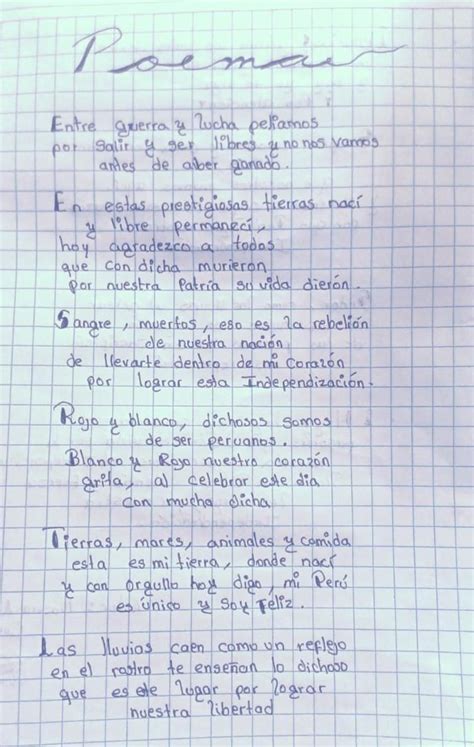 Poema
Entre guerra y lucha peliamos
por salir y ser libres y no nos vamos
antes de aiber ganado.
En estas prestigiosas tierras nací
y libre permanecí,
hoy agradezco a todos
que con dicha murieron
por nuestra Patria su vida dierón.
Sangre, muertos, eso es la rebelión
de nuestra nación
de llevarte dentro de mi corazón
por lograr esta Independización.
Rojo y blanco, dichosos somos
de ser peruanos.
Blanco y Rojo nuestro corazón
grita, al celebrar este dia
con mucha dicha
Tierras, mares, animales y comida
esta es mi tierra, donde nací
y con orgullo hoy digo, mi Perú
es único y soy Feliz.
Las lluvias caen como un reflejo
en el rostro te enseñan lo dichoso
que es este lugar por lograr
nuestra libertad